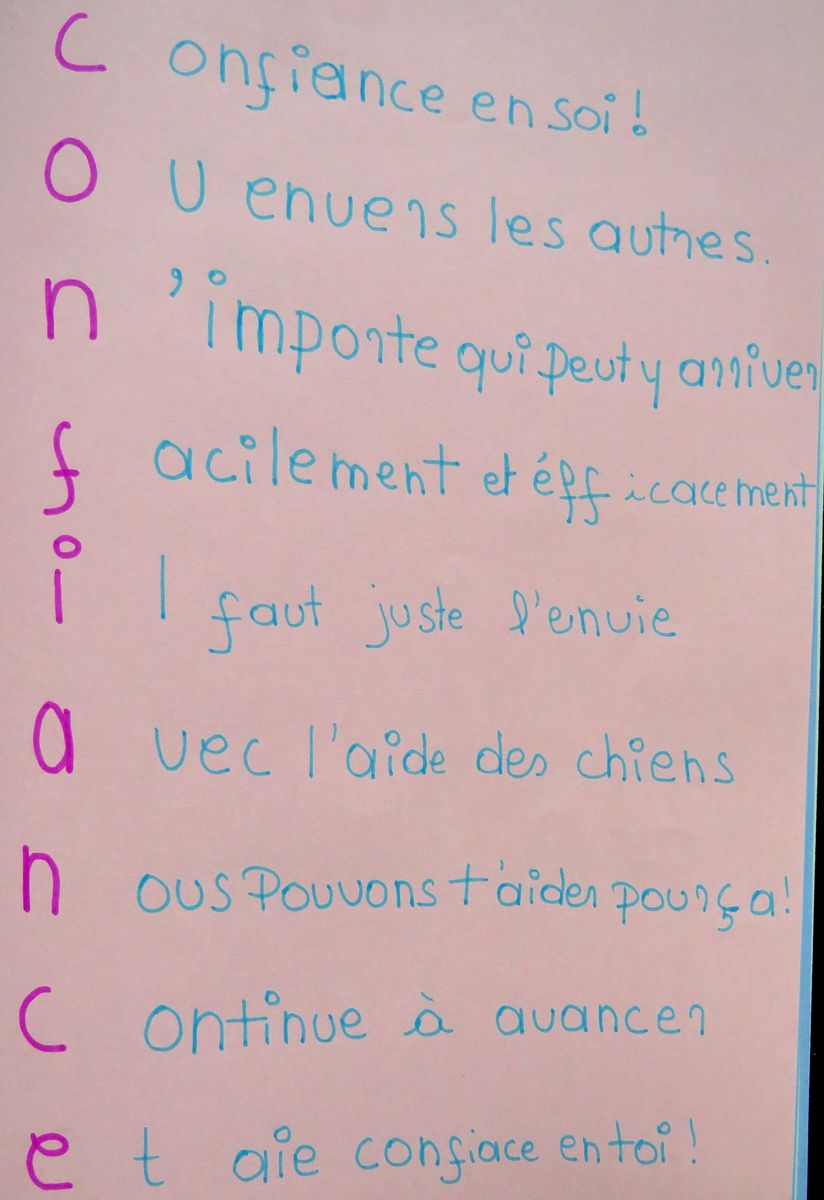 Confiance en soi !
Ou envers les autres.
n'importe qui peut y arriver
facilement et éfficacement
il faut juste l'envie
avec l'aide des chiens
nous Pouvons t'aider pour ça !
Continue à avancer
et aie confiace en toi !